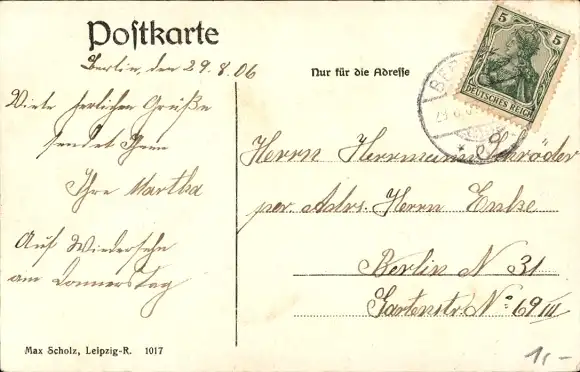 Postkarte
Berlin, den 29.8.06
Viele herlichen Grüße
sendet Ihnen
Ihre Martha
Auf Wiedersehn
am Donnerstag
Max Scholz, Leipzig-R. 1017
Nur für die Adresse
5 5
DEUTSCHES REICH
BER
Herrn Herrmann Schröder
per. Adrs. Herrn Enke
Berlin N 31
Gartenstr. No: 69 III
1,-